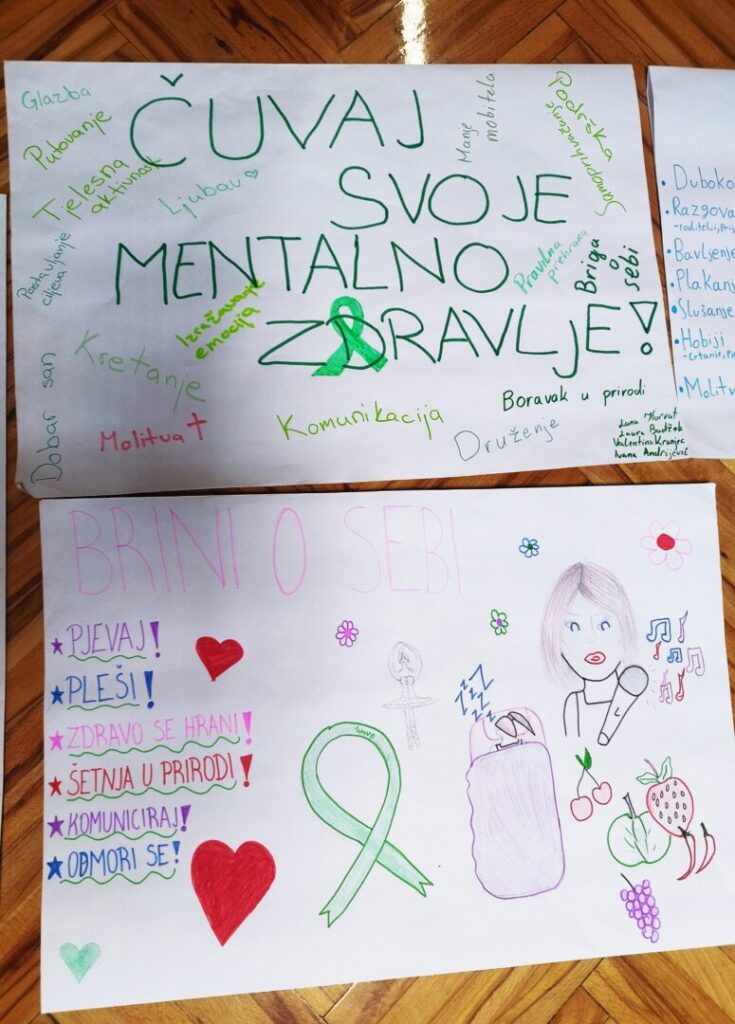 Glazba
Putovanje
Tjelesna
aktivnost
Ljubav
Postavljanje
ciljeva
ČUVAJ
SVOJE
MENTALNO
ZDRAVLJE!
Manje
mobitela
Podrška
Samoprihvaćanje
Pravilna
prehrana
Briga
o
sebi
Izražavanje
emocija
Kretanje
Dobar san
Molitva
Komunikacija
Druženje
Boravak u prirodi
Lana Horvat
Laura Budžek
Valentina Kranjec
Ivana Andrijević
• Duboko
• Razgova
• Bavljenje
• Plakanj
• Slušanje
• Hobiji
• Molitv
BRINI O SEBI
PJEVAJ!
PLEŠI!
ZDRAVO SE HRANI!
ŠETNJA U PRIRODI!
KOMUNICIRAJ!
ODMORI SE!
zzzzz